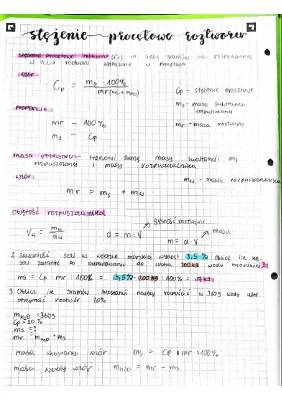 stężenie procentowe roztworu
stężenie procentowe roztworu (Cp) to ilość gramów sub. rozpuszczonej
w roztworu wyrażone w procentach
wzór:
Cp = ms · 100% / mr (ms + mw)
Cp - stężenie procentowe
ms - masa substancji rozpuszczonej
mr - masa roztworu
proporcja
mr - 100%
ms - Cp
masa roztworu - masy substancji ms
rozpuszczonej i masy rozpuszczalnika
wzór:
mr = ms + mw
mw - masa rozpuszczalnika
objętość rozpuszczalnika
Vw = mw / dw
d = m : V
gęstość
masa
m = d · V
2. zawartość soli w wodzie morskiej wynosi 3,5% oblicz ile kg
soli zostanie po odparowaniu do sucha wody morskiej
ms = Cp · mr : 100% = 3,5% · : 100% =
3. Oblicz ile gramów w 360g wody aby
otrzymać roztwór 20%
mH2O = 360g
Cp = 20%
ms = ?
mr = mH2O + ms
masa wzór ms = Cp · mr : 100%
masa wody wzór: mH2O = mr - ms